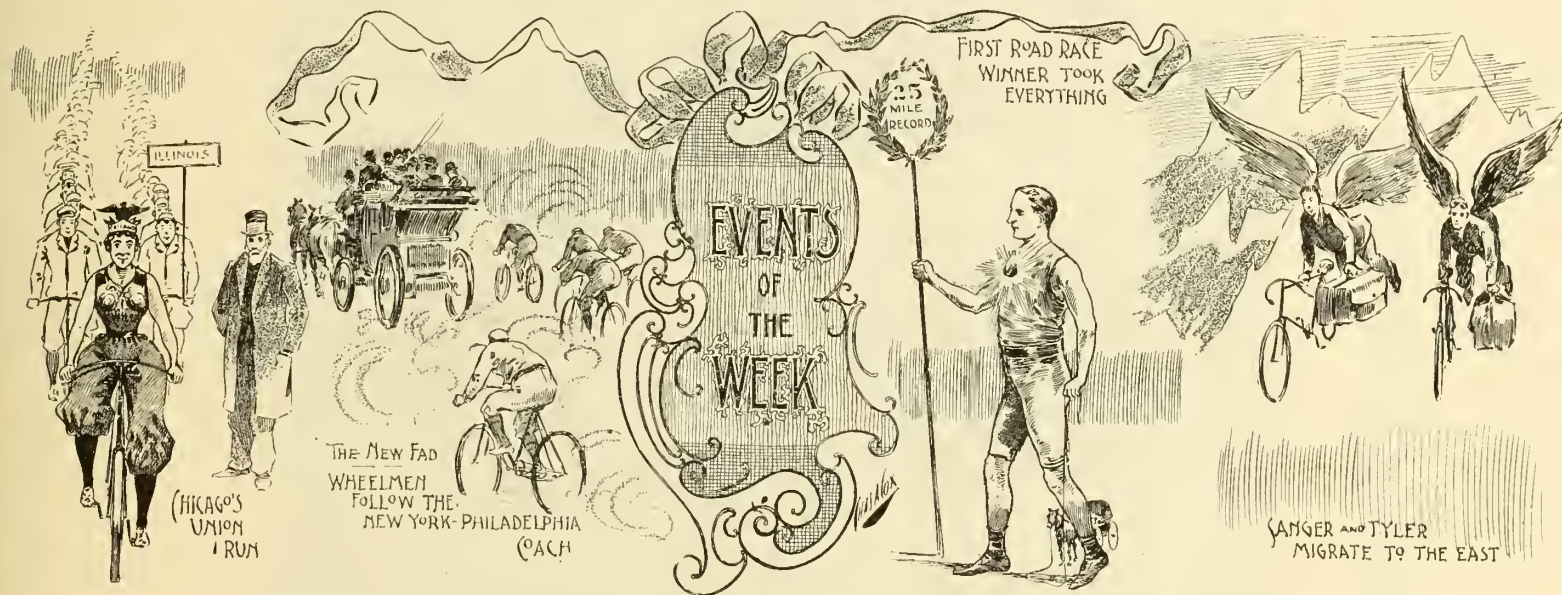 ILLINOIS
CHICAGO'S
UNION
RUN
THE NEW FAD
WHEELMEN
FOLLOW THE
NEW YORK-PHILADELPHIA
COACH
EVENTS
OF
THE
WEEK
25
MILE
RECORD
FIRST ROAD RACE
WINNER TOOK
EVERYTHING
SANGER AND TYLER
MIGRATE TO THE EAST